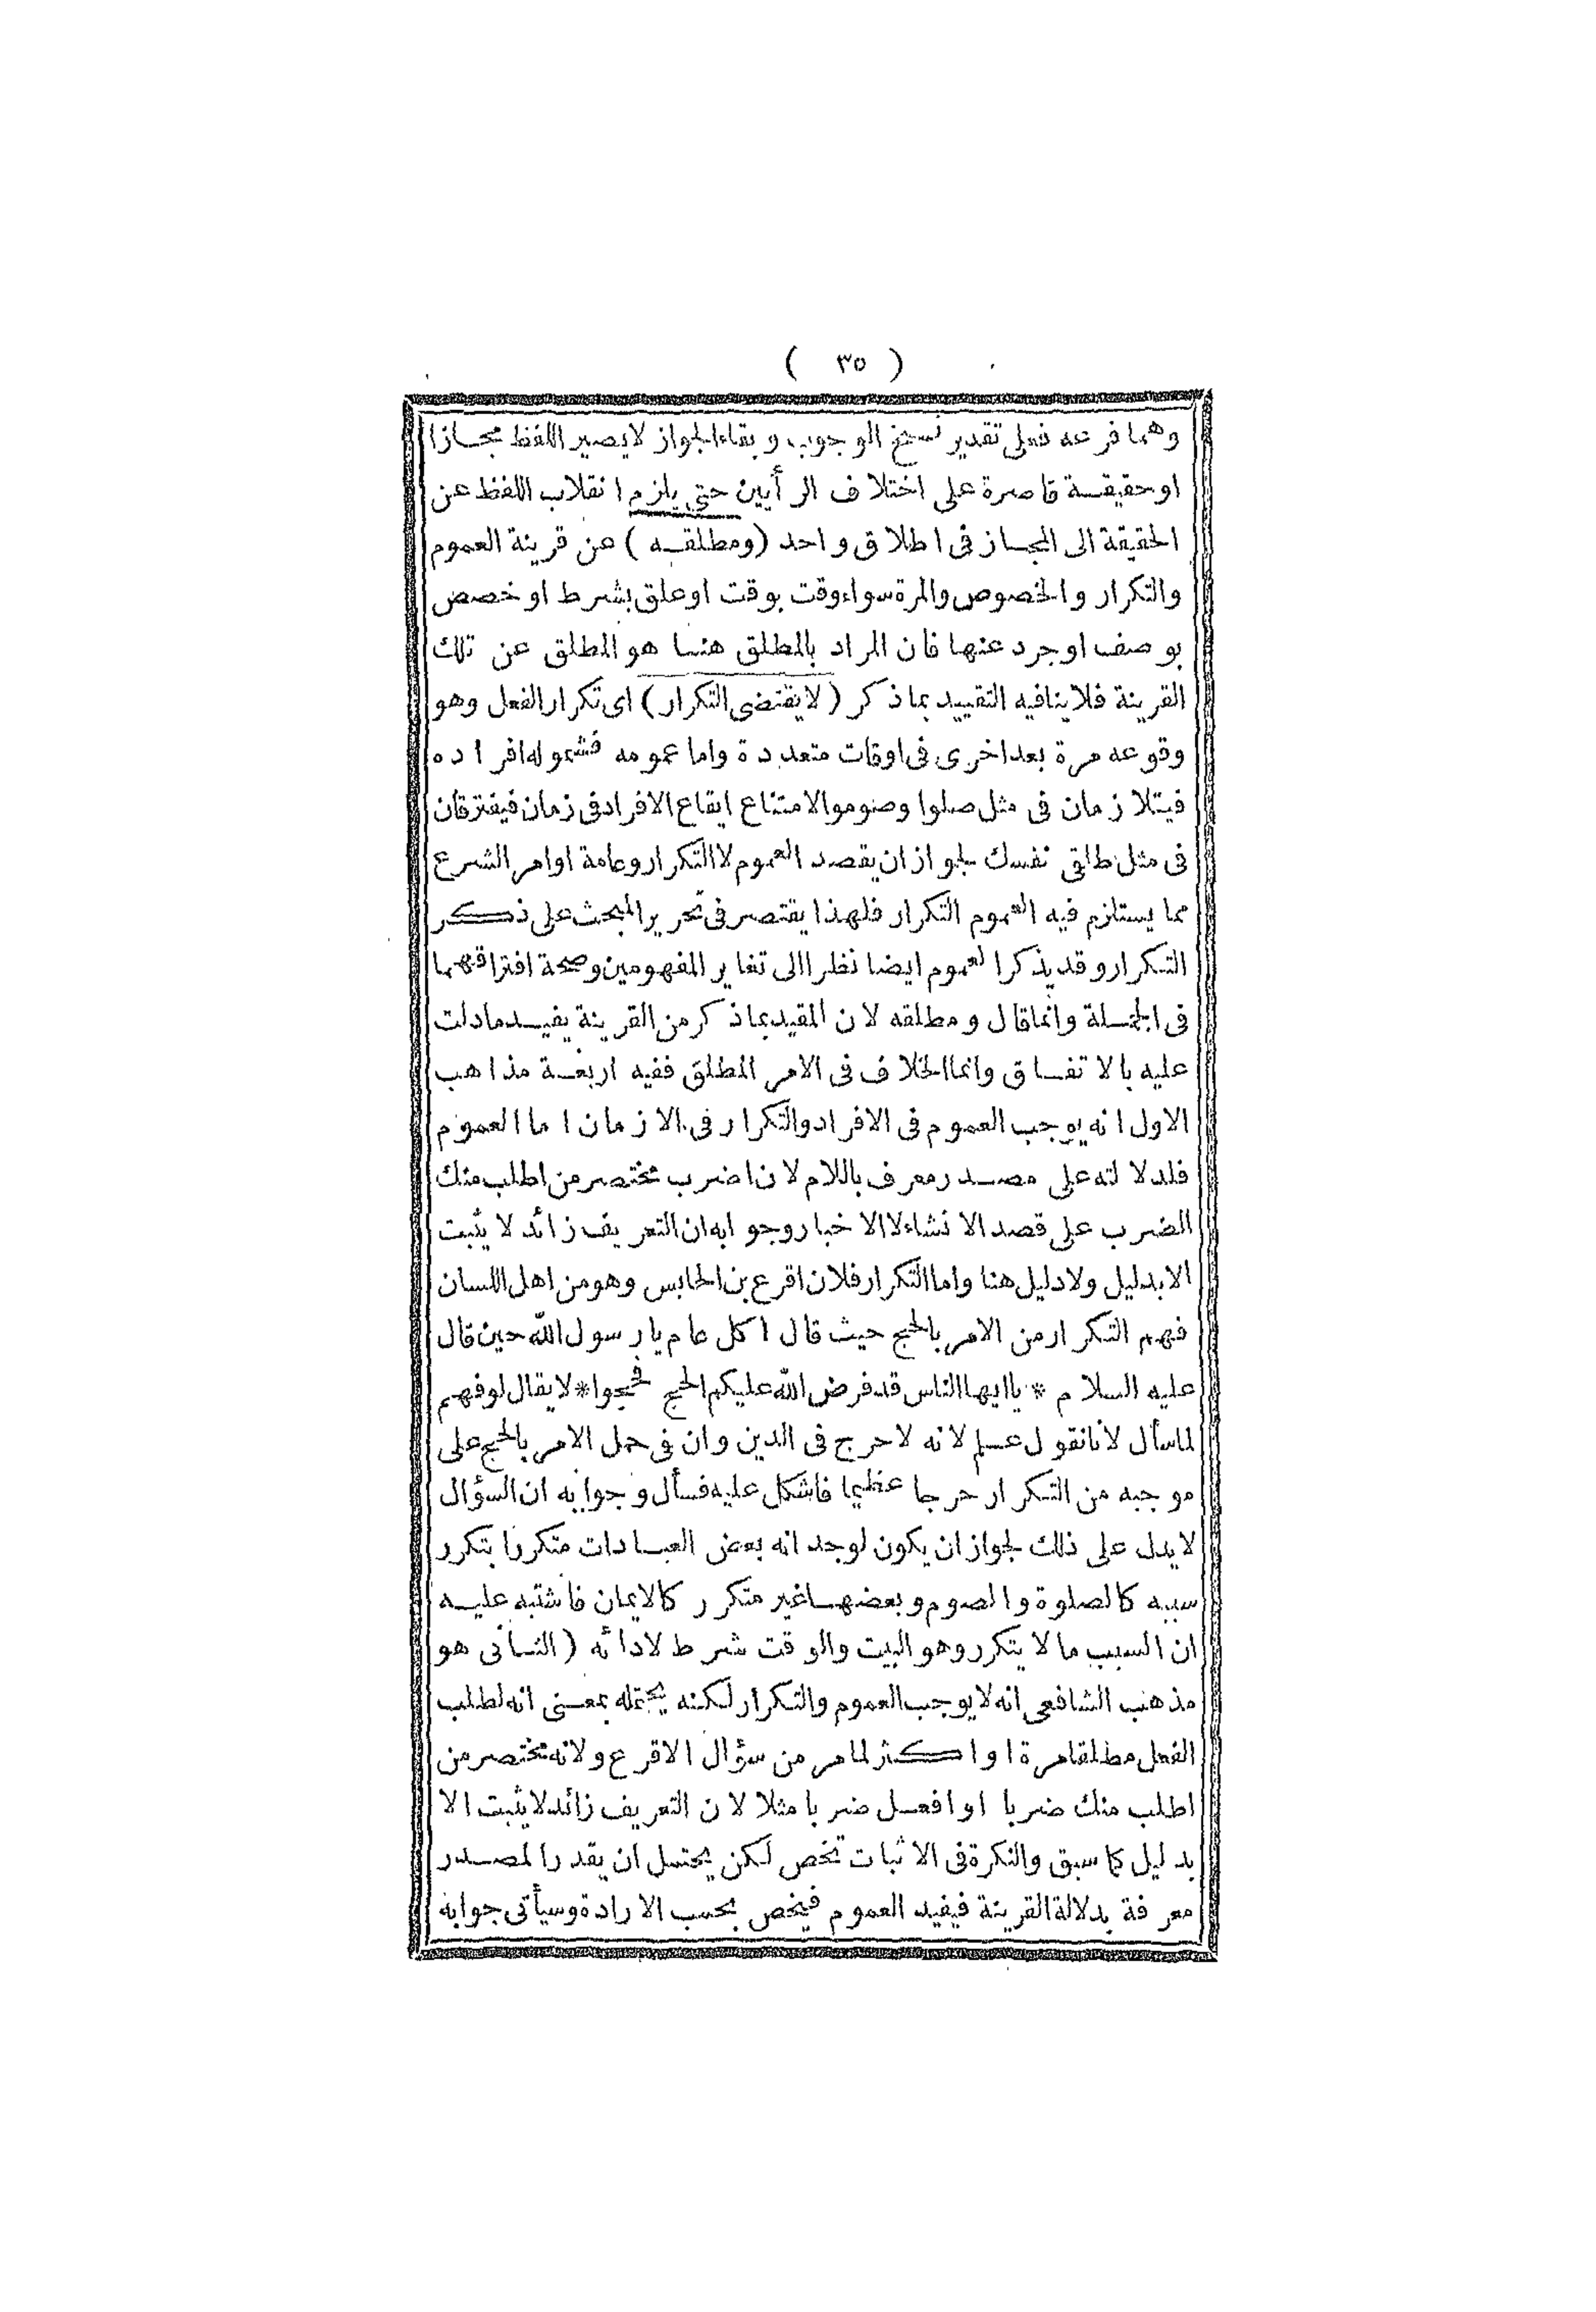 ( ٣٥ )
وهما فرعه فعلى تقدير نسخ الوجوب وبقاء الجواز لا يصير اللفظ مجازا
او حقيقة قاصرة على اختلاف الرأيين حتى يلزم انقلاب اللفظ عن
الحقيقة الى المجاز فى اطلاق واحد (ومطلقه) عن قرينة العموم
والتكرار والخصوص والمرة سواء وقت بوقت او علق بشرط او خصص
بوصف او جرد عنها فان المراد بالمطلق هنا هو المطلق عن تلك
القرينة فلا ينافيه التقييد بما ذكر (لا يقتضى التكرار) اى تكرار الفعل وهو
وقوعه مرة بعد اخرى فى اوقات متعددة واما عمومه فشموله افراده
فيتلازمان فى مثل صلوا وصوموا لامتناع ايقاع الافراد فى زمان فيفترقان
فى مثل طلقى نفسك لجواز ان يقصد العموم لا التكرار وعامة اوامر الشرع
مما يستلزم فيه العموم التكرار فلهذا يقتصر فى تحرير المبحث على ذكر
التكرار وقد يذكر العموم ايضا نظرا الى تغاير المفهومين وصحة افتراقهما
فى الجملة وانما قال ومطلقه لان المقيد بما ذكر من القرينة يفيد ما دلت
عليه بالاتفاق وانما الخلاف فى الامر المطلق ففيه اربعة مذاهب
الاول انه يوجب العموم فى الافراد والتكرار فى الازمان اما العموم
فلدلالته على مصدر معرف باللام لان اضرب مختصر من اطلب منك
الضرب على قصد الانشاء لا الاخبار وجوابه ان التعريف زائد لا يثبت
الا بدليل ولا دليل هنا واما التكرار فلان اقرع بن الحابس وهو من اهل اللسان
فهم التكرار من الامر بالحج حيث قال اكل عام يا رسول الله حين قال
عليه السلام * يا ايها الناس قد فرض الله عليكم الحج فحجوا * لا يقال لو فهم
لما سأل لأنا نقول علم لانه لا حرج فى الدين وان فى حمل الامر بالحج على
موجبه من التكرار حرجا عظيما فاشكل عليه فسأل وجوابه ان السؤال
لا يدل على ذلك لجواز ان يكون لوجد انه بعض العبادات متكررا بتكرر
سببه كالصلوة والصوم وبعضها غير متكرر كالايمان فاشتبه عليه
ان السبب ما لا يتكرر وهو البيت والوقت شرط لادائه (الثانى هو
مذهب الشافعى انه لا يوجب العموم والتكرار لكنه يحتمله بمعنى انه لطلب
الفعل مطلقا مرة او اكثر لما مر من سؤال الاقرع ولانه مختصر من
اطلب منك ضربا او افعل ضربا مثلا لان التعريف زائد لا يثبت الا
بدليل كما سبق والنكرة فى الاثبات تخص لكن يحتمل ان يقدر المصدر
معرفة بدلالة القرينة فيفيد العموم فيخص بحسب الارادة وسيأتى جوابه